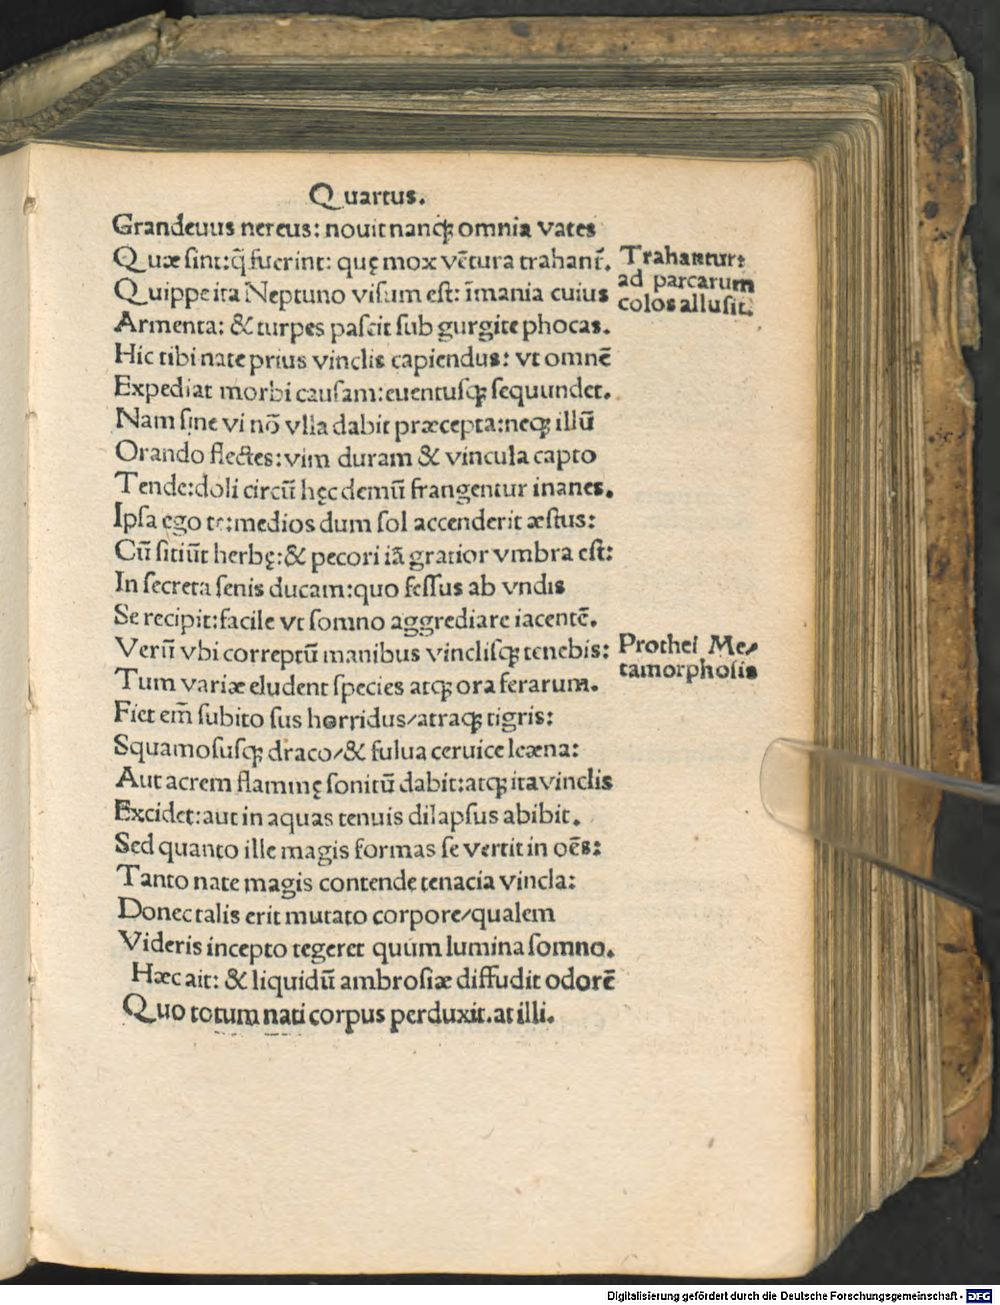 Quartus.
Grandeuus nereus: nouit nanqꝫ omnia vates
Quæ sint: q̃ fuerint: quę mox vẽtura trahanť.
Trahantur:
ad parcarum
colos allusit.
Quippe ita Neptuno visum est: ĩmania cuius
Armenta: & turpes pascit sub gurgite phocas.
Hic tibi nate prius vinclis capiendus: vt omnẽ
Expediat morbi causam: euentusqꝫ sequundet.
Nam sine vi nõ vlla dabit præcepta: neqꝫ illũ
Orando flectes: vim duram & vincula capto
Tende: doli circũ hęc demũ frangentur inanes.
Ipsa ego te: medios dum sol accenderit æstus:
Cũ sitiũt herbę: & pecori iã gratior vmbra est:
In secreta senis ducam: quo fessus ab vndis
Se recipit: facile vt somno aggrediare iacentẽ.
Verũ vbi correptũ manibus vinclisqꝫ tenebis:
Prothei Me/
tamorphosis
Tum variæ eludent species atqꝫ ora ferarum.
Fiet em̃ subito sus horridus/atraqꝫ tigris:
Squamosusqꝫ draco/& fulua ceruice leæna:
Aut acrem flammę sonitũ dabit: atqꝫ ita vinclis
Excidet: aut in aquas tenuis dilapsus abibit.
Sed quanto ille magis formas se vertit in oẽs:
Tanto nate magis contende tenacia vincla:
Donec talis erit mutato corpore/qualem
Videris incepto tegeret quum lumina somno.
Hæc ait: & liquidũ ambrosiæ diffudit odorẽ
Quo totum nati corpus perduxit. at illi.
Digitalisierung gefördert durch die Deutsche Forschungsgemeinschaft - DFG